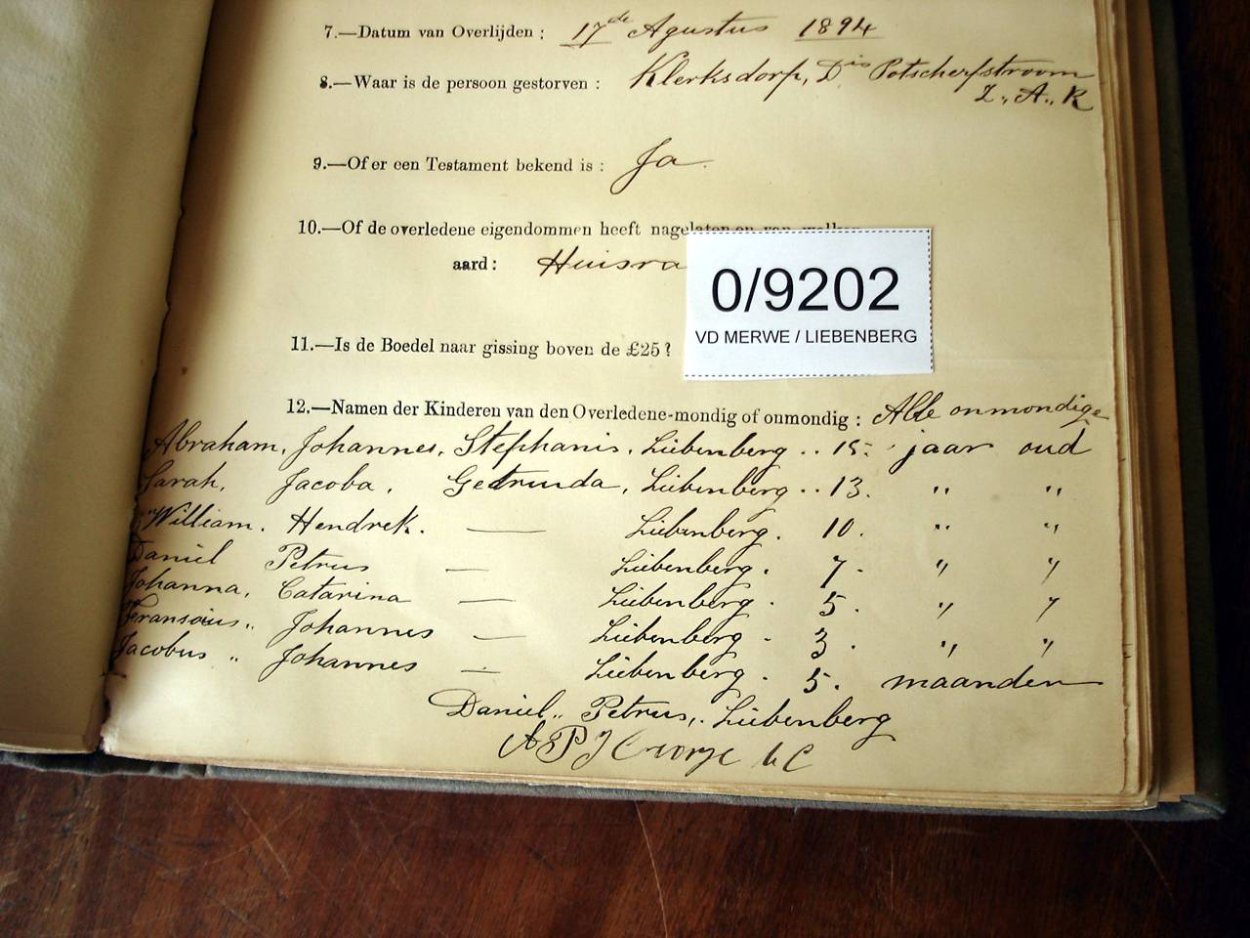 7.—Datum van Overlijden : 17de Agustus 1894
8.—Waar is de persoon gestorven : Klerksdorp, Dis Potscherfstroom
Z., A., R
9.—Of er een Testament bekend is : Ja.
10.—Of de overledene eigendommen heeft nagelaten en van welken
aard : Huisra
0/9202
VD MERWE / LIEBENBERG
11.—Is de Boedel naar gissing boven de £25 ?
12.—Namen der Kinderen van den Overledene-mondig of onmondig : Alle onmondige
Abraham, Johannes, Stephanis, Liebenberg .. 15. jaar oud
Sarah, Jacoba, Getruida, Liebenberg .. 13. " "
William. Hendrek. — Liebenberg. 10. " "
Daniel Petrus — Liebenberg. 7. " "
Johanna, Catarina — Liebenberg. 5. " "
Johannes — Liebenberg. 3. " "
Jacobus " Johannes — Liebenberg. 5. maanden
Daniel,, Petrus,, Liebenberg